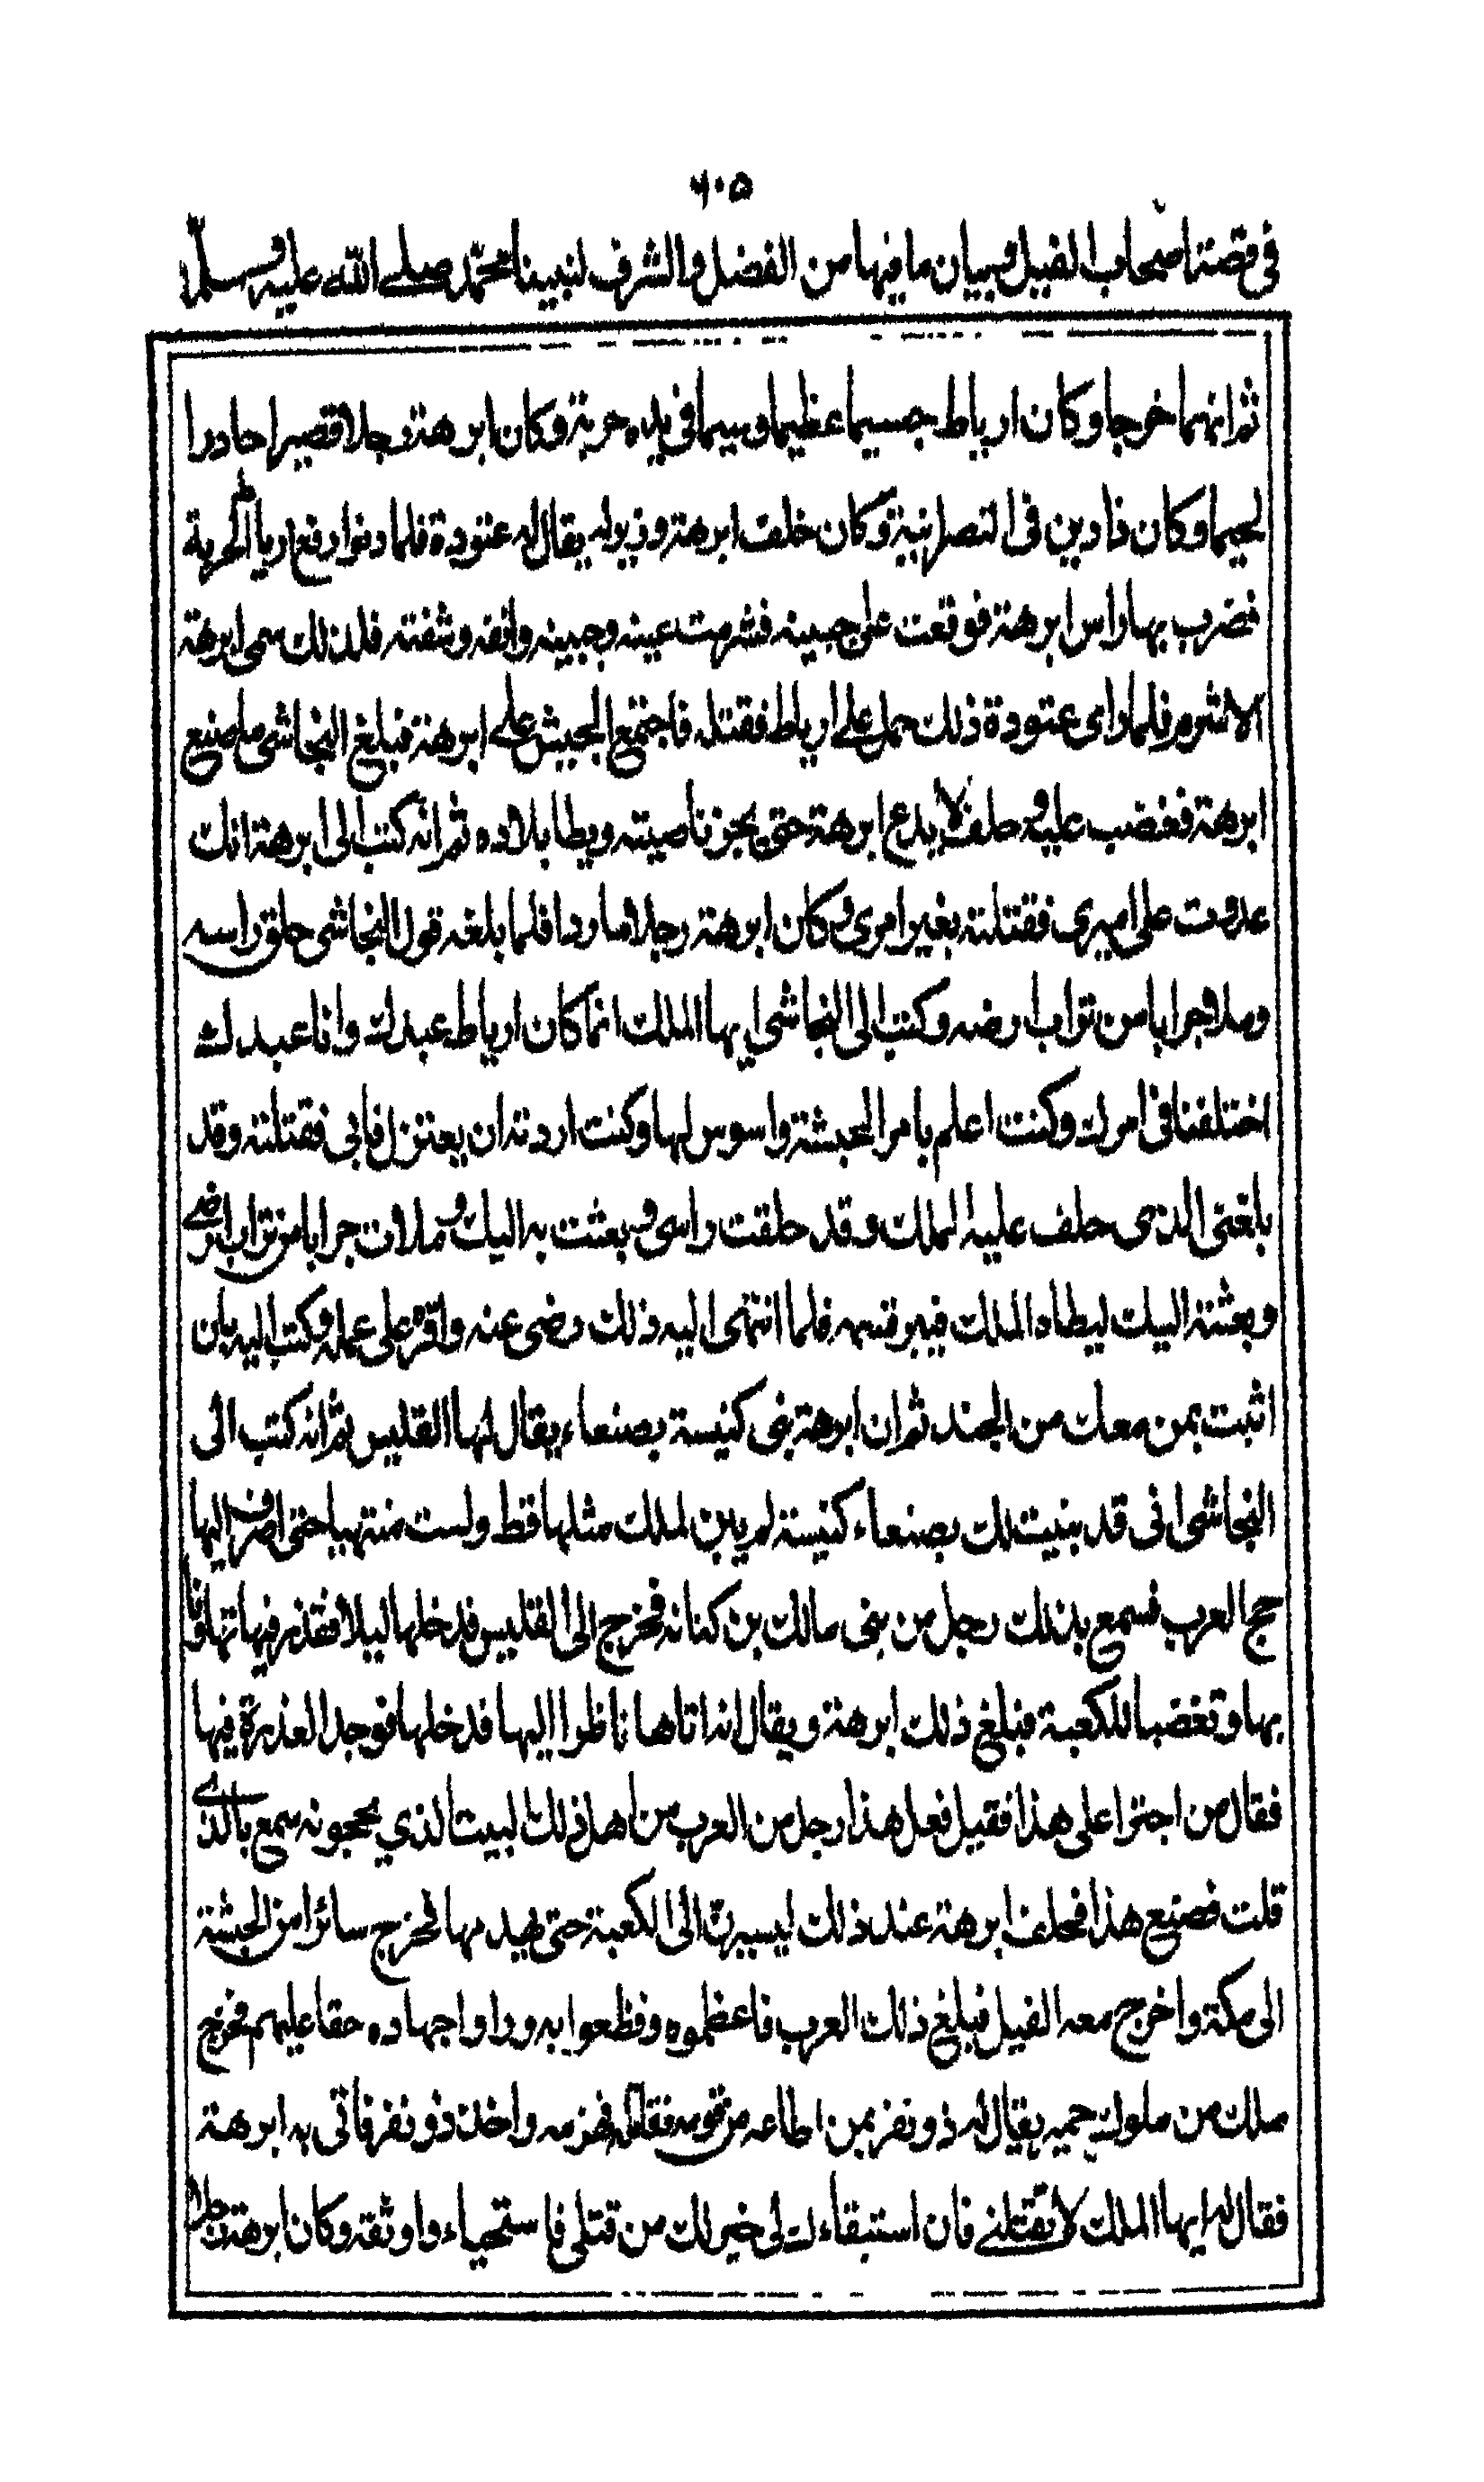 ٦٠٥
فى قصة اصحاب الفيل وبيان ما فيها من الفضل والشرف لنبينا محمّد صلى الله عليه وسلم
ثم انهما خرجا وكان ارياط جسيما عظيما وسيما فى يده حربة وكان ابرهة رجلا قصيرا حادرا
لحيما وكان ذا دين فى النصرانية وكان خلف ابرهة وزير له يقال له عتودة فلما دنوا رفع ارياط الحربة
فضرب بها راس ابرهة فوقعت على جبينه فشرمت عينه وجبينه وانفه وشفته فلذلك سمى ابرهة
الاشرم فلما راى عتودة ذلك حمل على ارياط فقتله فاجتمع الجيش على ابرهة فبلغ النجاشى ما صنع
ابرهة فغضب عليه وحلف لا يدع ابرهة حتى يجز ناصيته ويطا بلاده ثم انه كتب الى ابرهة انك
عدوت على اميرى فقتلته بغير امرى وكان ابرهة رجلا ماردا فلما بلغه قول النجاشى حلق راسه
وملا جرابا من تراب ارضه وكتب الى النجاشى ايها الملك انما كان ارياط عبدك وانا عبدك
اختلفنا فى امرك وكنت اعلم بامر الحبشة واسوس لها وكنت اردته ان يعتزل فابى فقتلته وقد
بلغنى الذى حلف عليه الملك وقد حلقت راسى وبعثت به اليك وملات جرابا من تراب ارضى
وبعثته اليك ليطاه الملك فيبر قسمه فلما انتهى اليه ذلك رضى عنه واقره على عمله وكتب اليه بان
اثبت بمن معك من الجند ثم ان ابرهة بنى كنيسة بصنعاء يقال لها القليس ثم انه كتب الى
النجاشى انى قد بنيت لك بصنعاء كنيسة لم يبن لملك مثلها قط ولست منتهيا حتى اصرف اليها
حج العرب فسمع بذلك رجل من بنى مالك بن كنانه فخرج الى القليس فدخلها ليلا فقذر فيها تهاونا
بها وتغضبا للكعبة فبلغ ذلك ابرهة ويقال انه اتاها ناظرا اليها فدخلها فوجد العذرة فيها
فقال من اجترا على هذا فقيل فعل هذا رجل من العرب من اهل ذلك البيت الذي يحجونه سمع بالذى
قلت فصنع هذا فحلف ابرهة عند ذلك ليسيرنّ الى الكعبة حتى يهدمها فخرج سائرا من الحبشة
الى مكة واخرج معه الفيل فبلغ ذلك العرب فاعظموه وفظعوا به وراوا جهاده حقا عليهم فخرج
ملك من ملوك حمير يقال له ذو نفر بمن اطاعه من قومه فقاتله فهزمه واخذ ذو نفر فاتى به ابرهة
فقال له ايها الملك لا تقتلنى فان استبقاءك لى خير لك من قتلى فاستحياه واوثقه وكان ابرهة رجلا